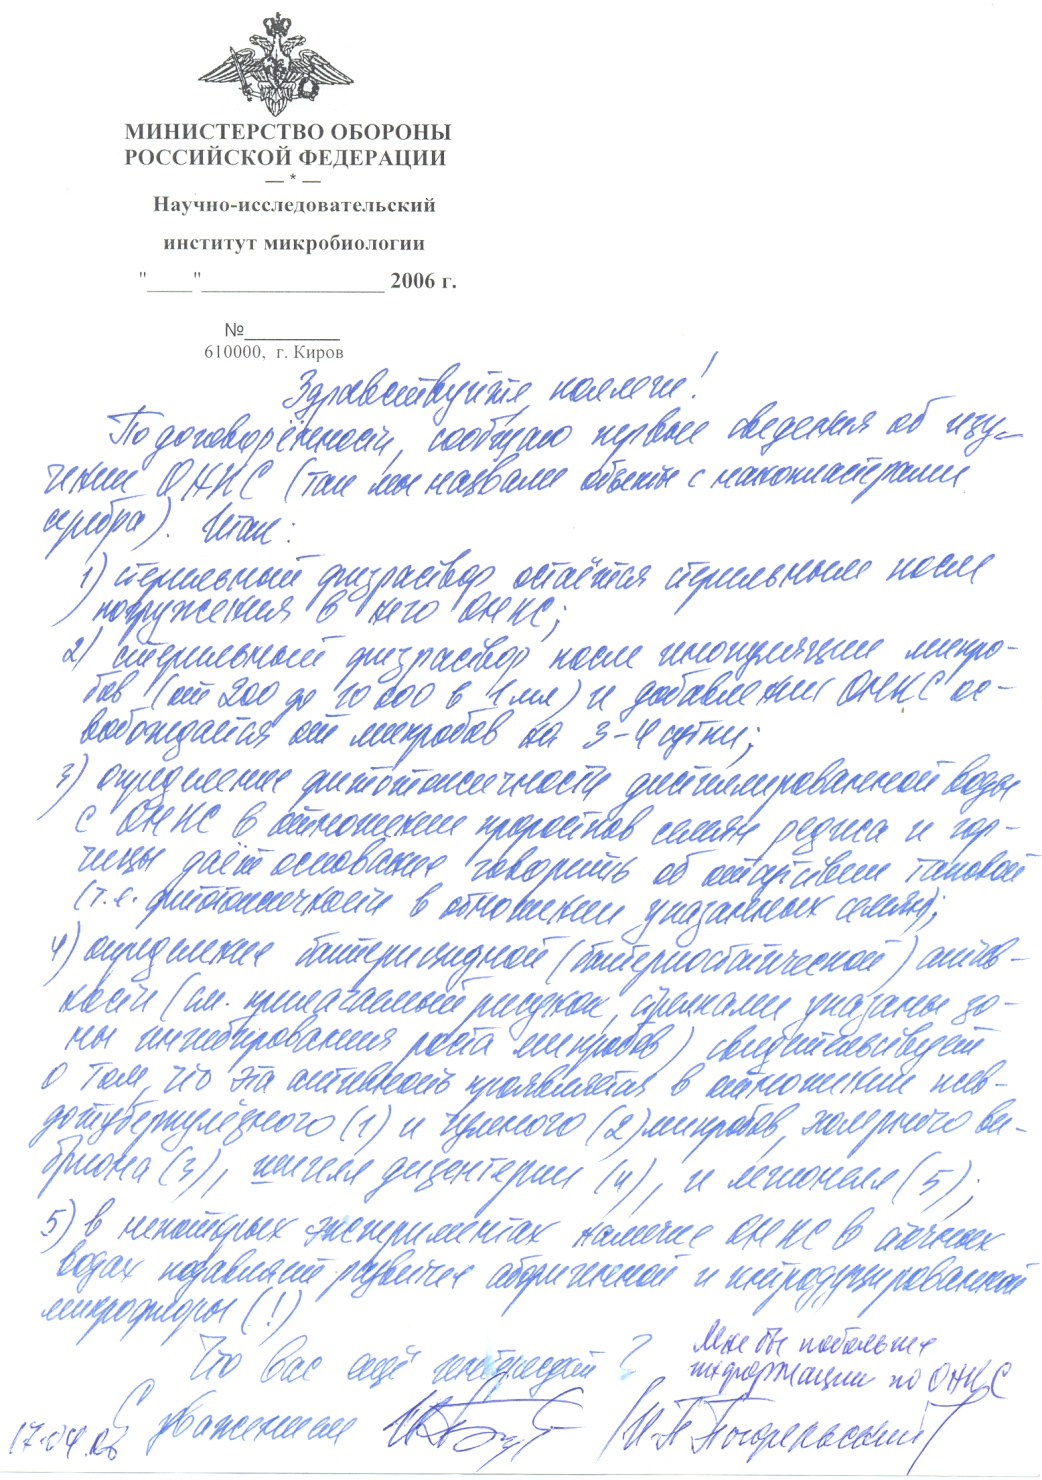 МИНИСТЕРСТВО ОБОРОНЫ
РОССИЙСКОЙ ФЕДЕРАЦИИ
— * —
Научно-исследовательский
институт микробиологии
"____"________________ 2006 г.
№_________
610000, г. Киров
Здравствуйте, коллеги!
По договорённости, сообщаю первые сведения об изу-
чении ОНКС (так мы назвали объекты с нанокластерами
серебра). Итак:
1) стерильный физраствор остаётся стерильным после
погружения в него ОНКС;
2) стерильный физраствор после инокуляции микро-
бов (от 200 до 10 000 в 1 мл) и добавления ОНКС ос-
вобождается от микробов на 3-4 сутки;
3) определение фитотоксичности дистиллированной воды
с ОНКС в отношении проростков семян редиса и гор-
чицы даёт основание говорить об отсутствии таковой
(т.е. фитотоксичности в отношении указанных семян);
4) определение бактерицидной (бактериостатической) актив-
ности (см. прилагаемый рисунок, стрелками указаны зо-
ны ингибирования роста микробов) свидетельствует
о том, что эта активность проявляется в отношении псев-
дотуберкулёзного (1) и чумного (2) микробов, холерного ви-
бриона (3), шигелл дизентерии (4), и легионелл (5);
5) в некоторых экспериментах наличие ОНКС в сточных
водах подавляет развитие аборигенной и интродуцированной
микрофлоры (!)
Что вас ещё интересует?
Мне бы побольше
информации по ОНКС
С уважением
/И.П. Погорельский/
17.04.06